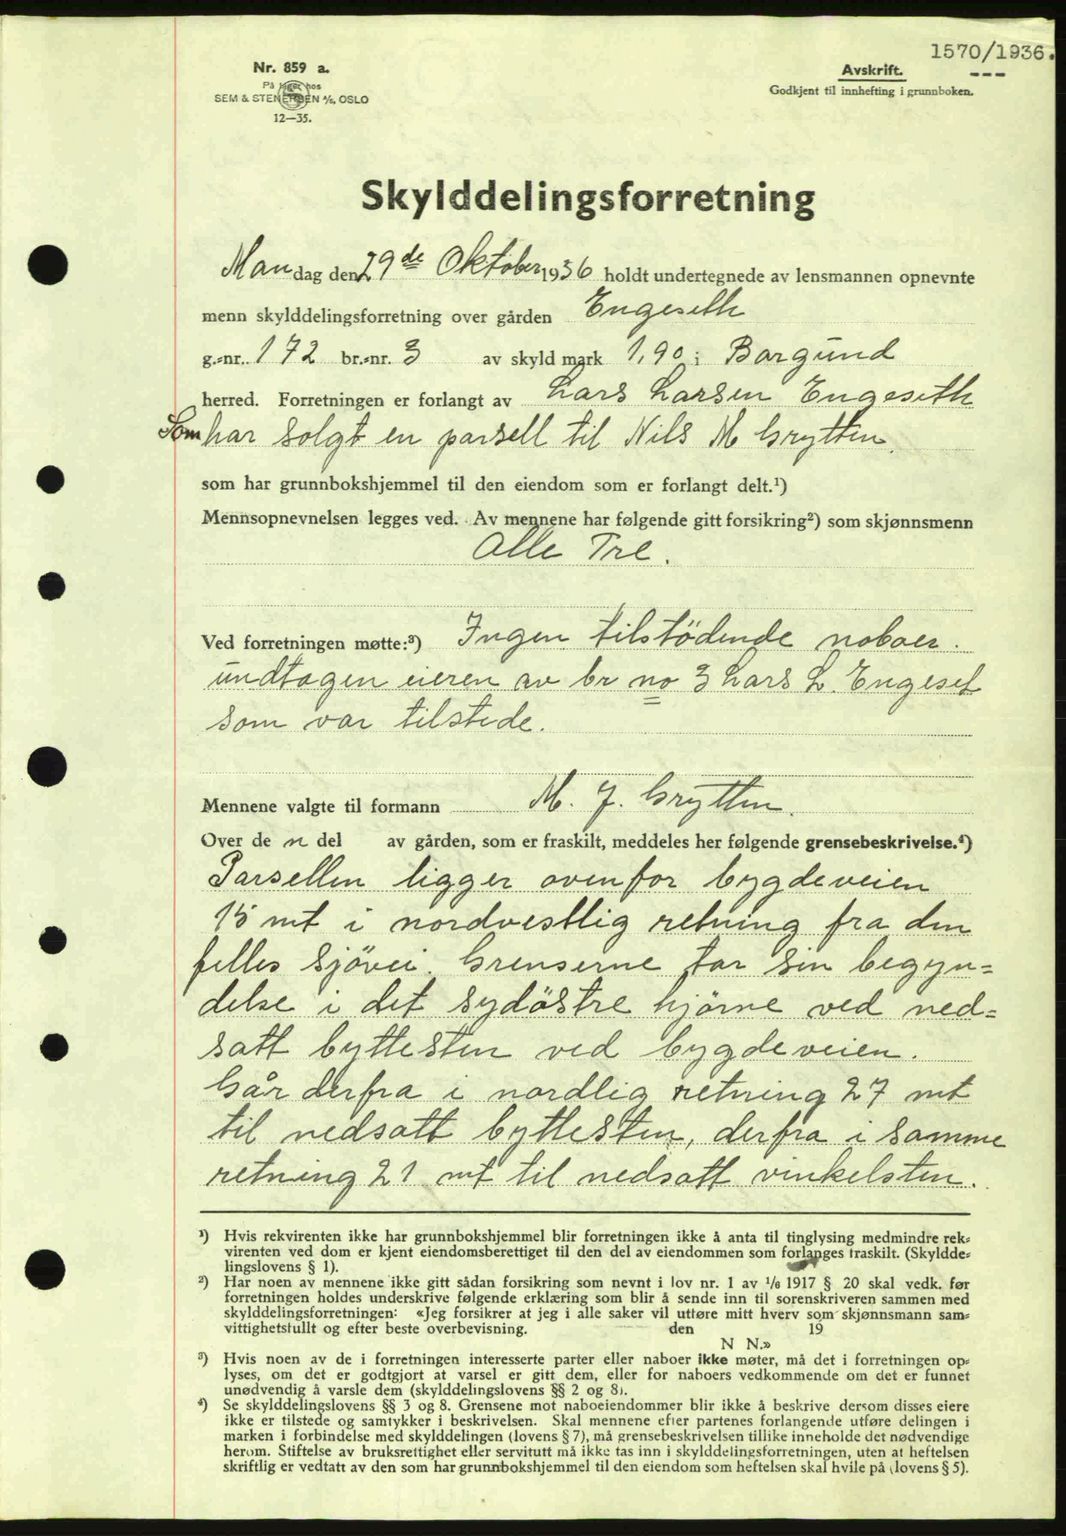 1570/1936.
Nr. 859 a.
På lager hos
SEM & STENERSEN A/S. OSLO
12—35.
Avskrift.
Godkjent til innhefting i grunnboken.
Skylddelingsforretning
Mandag den 29de Oktober 1936 holdt undertegnede av lensmannen opnevnte
menn skylddelingsforretning over gården Engeseth
g.-nr. 172 br.-nr. 3 av skyld mark 1,90 i Borgund
herred. Forretningen er forlangt av Lars Larsen Engeseth
Som har solgt en parsell til Nils M Grytten.
som har grunnbokshjemmel til den eiendom som er forlangt delt.¹)
Mennsopnevnelsen legges ved. Av mennene har følgende gitt forsikring²) som skjønnsmenn
Alle Tre.
Ved forretningen møtte:³) Ingen tilstödende naboer.
undtagen eieren av br no 3 Lars L. Engeset
som var tilstede.
Mennene valgte til formann M. J. Grytten.
Over de n del av gården, som er fraskilt, meddeles her følgende grensebeskrivelse.⁴)
Parsellen ligger ovenfor bygdeveien
15 mt i nordvestlig retning fra den
felles sjövei. Grenserne tar sin begyn=
delse i det sydöstre hjörne ved ned=
satt byttesten ved bygdeveien.
Går derfra i nordlig retning 27 mt
til nedsatt byttesten, derfra i samme
retning 21 mt til nedsatt vinkelsten.
¹) Hvis rekvirenten ikke har grunnbokshjemmel blir forretningen ikke å anta til tinglysing medmindre rek-
virenten ved dom er kjent eiendomsberettiget til den del av eiendommen som forlanges fraskilt. (Skyldde-
lingslovens § 1).
²) Har noen av mennene ikke gitt sådan forsikring som nevnt i lov nr. 1 av 1/6 1917 § 20 skal vedk. før
forretningen holdes underskrive følgende erklæring som blir å sende inn til sorenskriveren sammen med
skylddelingsforretningen: «Jeg forsikrer at jeg i alle saker vil utføre mitt hverv som skjønnsmann sam-
vittighetsfullt og efter beste overbevisning. den 19
N N.»
³) Hvis noen av de i forretningen interesserte parter eller naboer ikke møter, må det i forretningen op-
lyses, om det er godtgjort at varsel er gitt dem, eller for naboers vedkommende om det er funnet
unødvendig å varsle dem (skylddelingslovens §§ 2 og 8).
⁴) Se skylddelingslovens §§ 3 og 8. Grensene mot naboeiendommer blir ikke å beskrive dersom disses eiere
ikke er tilstede og samtykker i beskrivelsen. Skal mennene efter partenes forlangende utføre delingen i
marken i forbindelse med skylddelingen (lovens § 7), må grensebeskrivelsen tillike inneholde det nødvendige
herom. Stiftelse av bruksrettighet eller servitutt må ikke tas inn i skylddelingsforretningen, uten at heftelsen
skriftlig er vedtatt av den som har grunnbokshjemmel til den eiendom som heftelsen skal hvile på (lovens § 5).